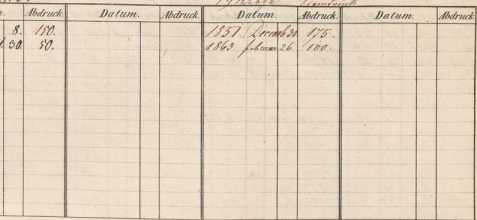 Abdruck. Datum. Abdruck. Datum. Abdruck. Datum. Abdruck
8. 150. 1851 Decemb 30 175.
30. 50. 1863 februar 26 100.